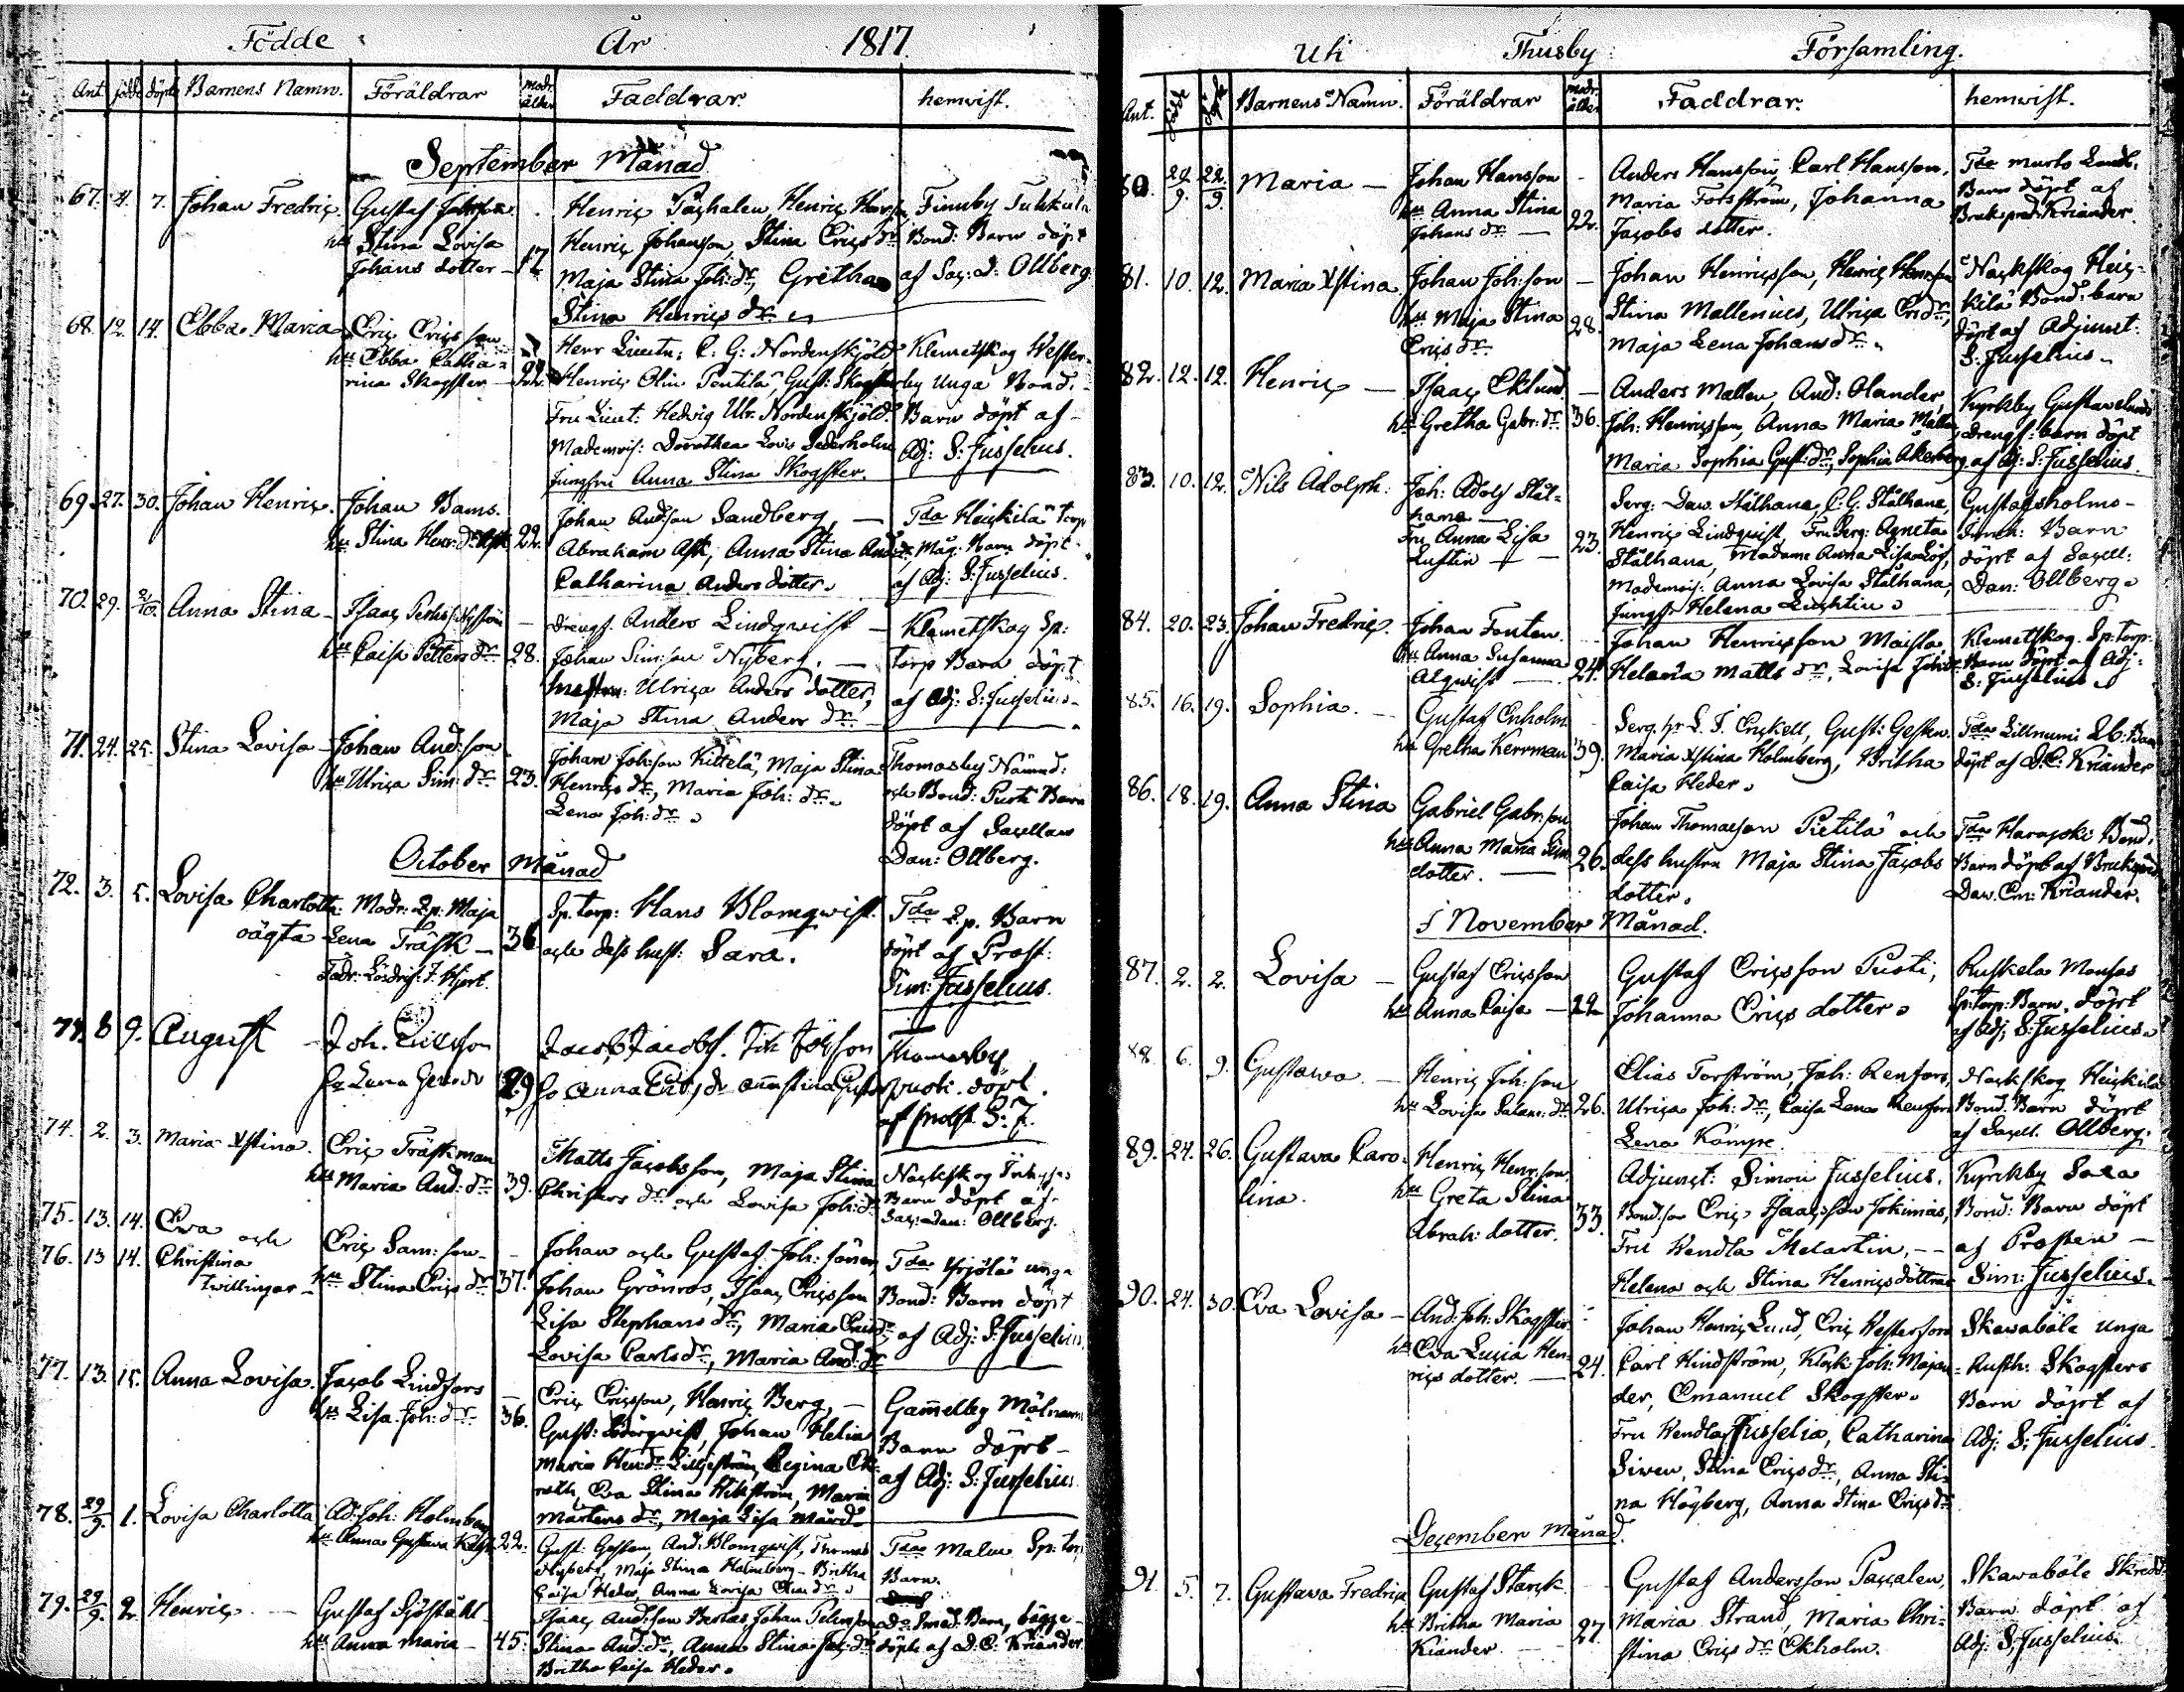 Födde År 1817.
Ant. födde döpte Barnens Namn. Föräldrar modr. ålder Faddrar. hemvist.
September Månad
67. 4. 7. Johan Fredric. Gustaf
hu Stina Lovisa
Johans dotter - 17
Henric Paxhalen, Henric
Henric Johanson, Stina Erics dr
Maja Stina Joh: dr, Gretha
Stina Henrics dr
Finnby Tuhkula
Bond: Barn döpt
af Sac: D: Ollberg
68. 12. 14. Ebba Maria Eric Ericsson
hu Ebba Catha-
rina Skogster 22.
Herr Lieutn: C: G: Nordenskjöld
Henric Olin Pentilä, Gust: Skogster
Fru Lieut: Hedvig Ulr. Nordenskjöld
Mademois: Dorothea Lovis Sederholm
Jungfru Anna Stina Skogster.
Klemetskog Wester-
by Unga Bond.
Barn döpt af
Adj: S: Jusselius.
69. 27. 30. Johan Henric. Johan Bams.
hu Stina Henr: dr Ask 22.
Johan Andson Sandberg, -
Abraham Ask, Anna Stina And: dr,
Catharina Anders dotter.
Tda Heickilä Torp
Måg: Barn döpt
af Adj: S: Jusselius.
70. 29. 2/10. Anna Stina - Isaac Petters: Nyström
hu Caisa Petters dr 28.
Drengs. Anders Lindqwist -
Johan Sim:son Nyberg. -
Ulrica Anders dotter,
Maja Stina Anders dr
Klemetskog Sp:
Torp Barn döpt
af Adj: S: Jusselius
71. 24. 25. Stina Lovisa - Johan And:son
hu Ulrica Sim: dr 23.
Johan Joh:son Kittelä, Maja Stina
Henrics dr, Maria Joh: dr.
Lena Joh: dr
Thomasby Nämnd:
och Bond: Pusti Barn
döpt af Sacellan
Dan: Ollberg.
October Månad
72. 3. 5. Lovisa Charlotta Modr: Qp: Maja
oägta Lena Träsk - 36
Sp. torp: Hans Blomqwist
och dess hust: Sara.
Tda Qp. Barn
döpt af Prost:
Sim: Jusselius.
8 9. August - Joh. Ericsson
29
Jacob Jacobs.
Thomasby
Pusti. döpt
af prost S: J.
74. 2. 3. Maria Xstina. Eric Träskman
hu Maria And: dr 39.
Matts Jacobsson, Maja Stina
Christers dr och Lovisa Joh: dr
Nackskog
Barn döpt af
Sac: Dan: Ollberg.
75. 13. 14. Eva och
76. 13 14. Christina
Twillingar
Eric Sam:son
hu Stina Erics dr 37.
Johan och Gustaf Joh: söner,
Johan Grönros, Isaac Ericsson
Lisa Stephans dr, Maria Erics dr
Lovisa Carls dr, Maria And: dr
Tda Yrjölä unga
Bond: Barn döpt
af Adj: S: Jusselius.
77. 13. 15. Anna Lovisa. Jacob Lindfors
hu Lisa Joh: dr 36.
Eric Ericsson, Henric Berg, -
Gust: Söderqwist, Johan Helin
Maria Hen: dr Liljeström, Regina Ek-
roth, Eva Stina Wikström, Maria
Mårtens dr, Maja Lisa
Gam̄elby Mölnarens
Barn döpt
af Adj: S: Jusselius.
78. 29/9. 1. Lovisa Charlotta Ad: Joh: Holmberg
hu Anna Gustava 22.
Gust: Gesten, And: Blomqwist, Thomas
Nyberg, Maja Stina Holmberg - Britha
Caisa Heder, Anna Lovisa
Tda Malm Sp: torp
Barn.
79. 29/9. 2. Henric. - Gustaf Sjöståhl
hu Anna Maria - 45.
Isaac And:son Johan Peterson
Stina And: dr, Anna Stina dr
Britha Caisa Heder.
Do Smed. Barn, bägge
döpte af D. C: Kriander
Uti Thusby Församling.
Ant. födde döpte Barnens Namn. Föräldrar modr. ålder Faddrar. hemvist.
80. 24/9. 22/9. Maria - Johan Hansson
hu Anna Stina
Johans dr - 22.
Anders Hansson, Carl Hansson,
Maria Forsström, Johanna
Jacobs dotter.
Tda
Barn döpt af
Brukspred. Kriander.
81. 10. 12. Maria Xstina Johan Joh:son -
hu Maja Stina 28.
Erics dr.
Johan Henricsson, Henric
Stina Mallenius, Ulrica Er: dr,
Maja Lena Johans dr
Nackskog Heic-
kilä Bond: barn
döpt af Adjunct:
S: Jusselius
82. 12. 12. Henric - Isaac Eklund -
hu Gretha Gabr: dr 36.
Anders Mallen, And: Olander,
Joh: Henricsson, Anna Maria Mallen
Maria Sophia Gust: dr, Sophia Åkerberg
Kyrkby Gustavelund
drengs: barn döpt
af Adj: S: Jusselius.
83. 10. 12. Nils Adolph. Joh: Adolf Stål-
hane -
Fru Anna Lisa 23.
Lustin -
Serg: Dav. Stålhane, C: G: Stålhane,
Henric Lindqwist, Fru Serg: Agneta
Stålhana, Madame Anna Lisa
Mademois: Anna Lovisa Stålhana,
Jungfr Helena
Gustafsholms
Barn
döpt af Sacell:
Dan: Ollberg.
84. 20. 23. Johan Fredric. Johan Fonten
hu Anna Susanna 24.
Alqwist
Johan Henricsson Maisla
Helena Matts dr, Lovisa Joh: dr
Klemetskog. Sp: torp.
Barn döpt af Adj:
S: Jusselius
85. 16. 19. Sophia. - Gustaf Enholm
hu Gretha Kerrman 39.
Serg. hr S. J. Enckell, Gust: Gesten.
Maria Xstina Holmberg, Britha
Caisa Heder.
Tda Lillnumi
döpt af D. C: Kriander
86. 18. 19. Anna Stina Gabriel Gabr:son
hu Anna Maria Sim: 26.
dotter. -
Johan Thomasson Pietilä och
dess hustru Maja Stina Jacobs
dotter.
Tda Haraxoki Bond.
Barn döpt af Brukspred.
Dav. Em: Kriander.
November Månad.
87. 2. 2. Lovisa - Gustaf Ericsson
hu Anna Caisa - 22
Gustaf Ericsson Pusti,
Johanna Erics dotter.
Ruskela Monsas
Sp: torp: Barn. döpt
af Adj. S: Jusselius.
88. 6. 9. Gustava. - Henric Joh:son
hu Lovisa Salam: dr 26.
Elias Torström, Joh: Renfors,
Ulrica Joh: dr, Caisa Lena Renfors
Lena Kämpe.
Nackskog Heickilä
Bond. Barn döpt
af Sacell. Ollberg.
89. 24. 26. Gustava Caro-
lina.
Henric Henr:son
hu Greta Stina
Abrah: dotter. 33.
Adjunct: Simon Jusselius.
Bond:son Eric Isaacsson Jokimäs,
Fru Wendla Melartin, - -
Helena och Stina Henrics döttrar
Kyrkby Saxa
Bond: Barn döpt
af Prosten -
Sim: Jusselius.
90. 24. 30. Eva Lovisa - And: Joh: Skogster
hu Eva Lucia Hen-
rics dotter. - 24.
Johan Henric Lund, Eric Westerfors
Carl Windström, Klock: Joh: Majan-
der, Emanuel Skogster.
Fru Wendla Jusselia, Catharina
Siren, Stina Erics dr, Anna Sti-
na Högberg, Anna Stina Erics dr
Skavaböle Unga
Rusth: Skogsters
Barn döpt af
Adj: S: Jusselius
December Månad.
91. 5. 7. Gustava Fredrica Gustaf Starck
hu Britha Maria 27.
Kiander
Gustaf Andersson Paxalen,
Maria Strand, Maria Chri-
stina Erics dr Ekholm.
Skavaböle Skredd.
Barn döpt af
Adj: S: Jusselius.